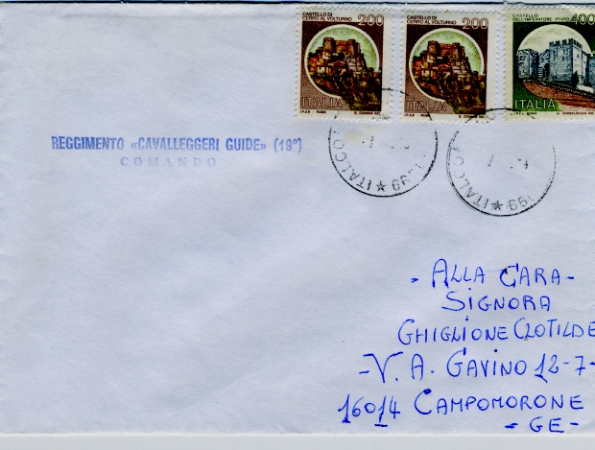 CASTELLO DI
CERRO AL VOLTURNO 200
ITALIA
CASTELLO DI
CERRO AL VOLTURNO 200
ITALIA
CASTELLO
DELL'IMPERATORE 400
ITALIA
ITALCO
ITALCO
REGGIMENTO «CAVALLEGGERI GUIDE» (19°)
COMANDO
- ALLA CARA-
SIGNORA
GHIGLIONE CLOTILDE
-V. A. GAVINO 12-7-
16014 CAMPOMORONE
- GE -